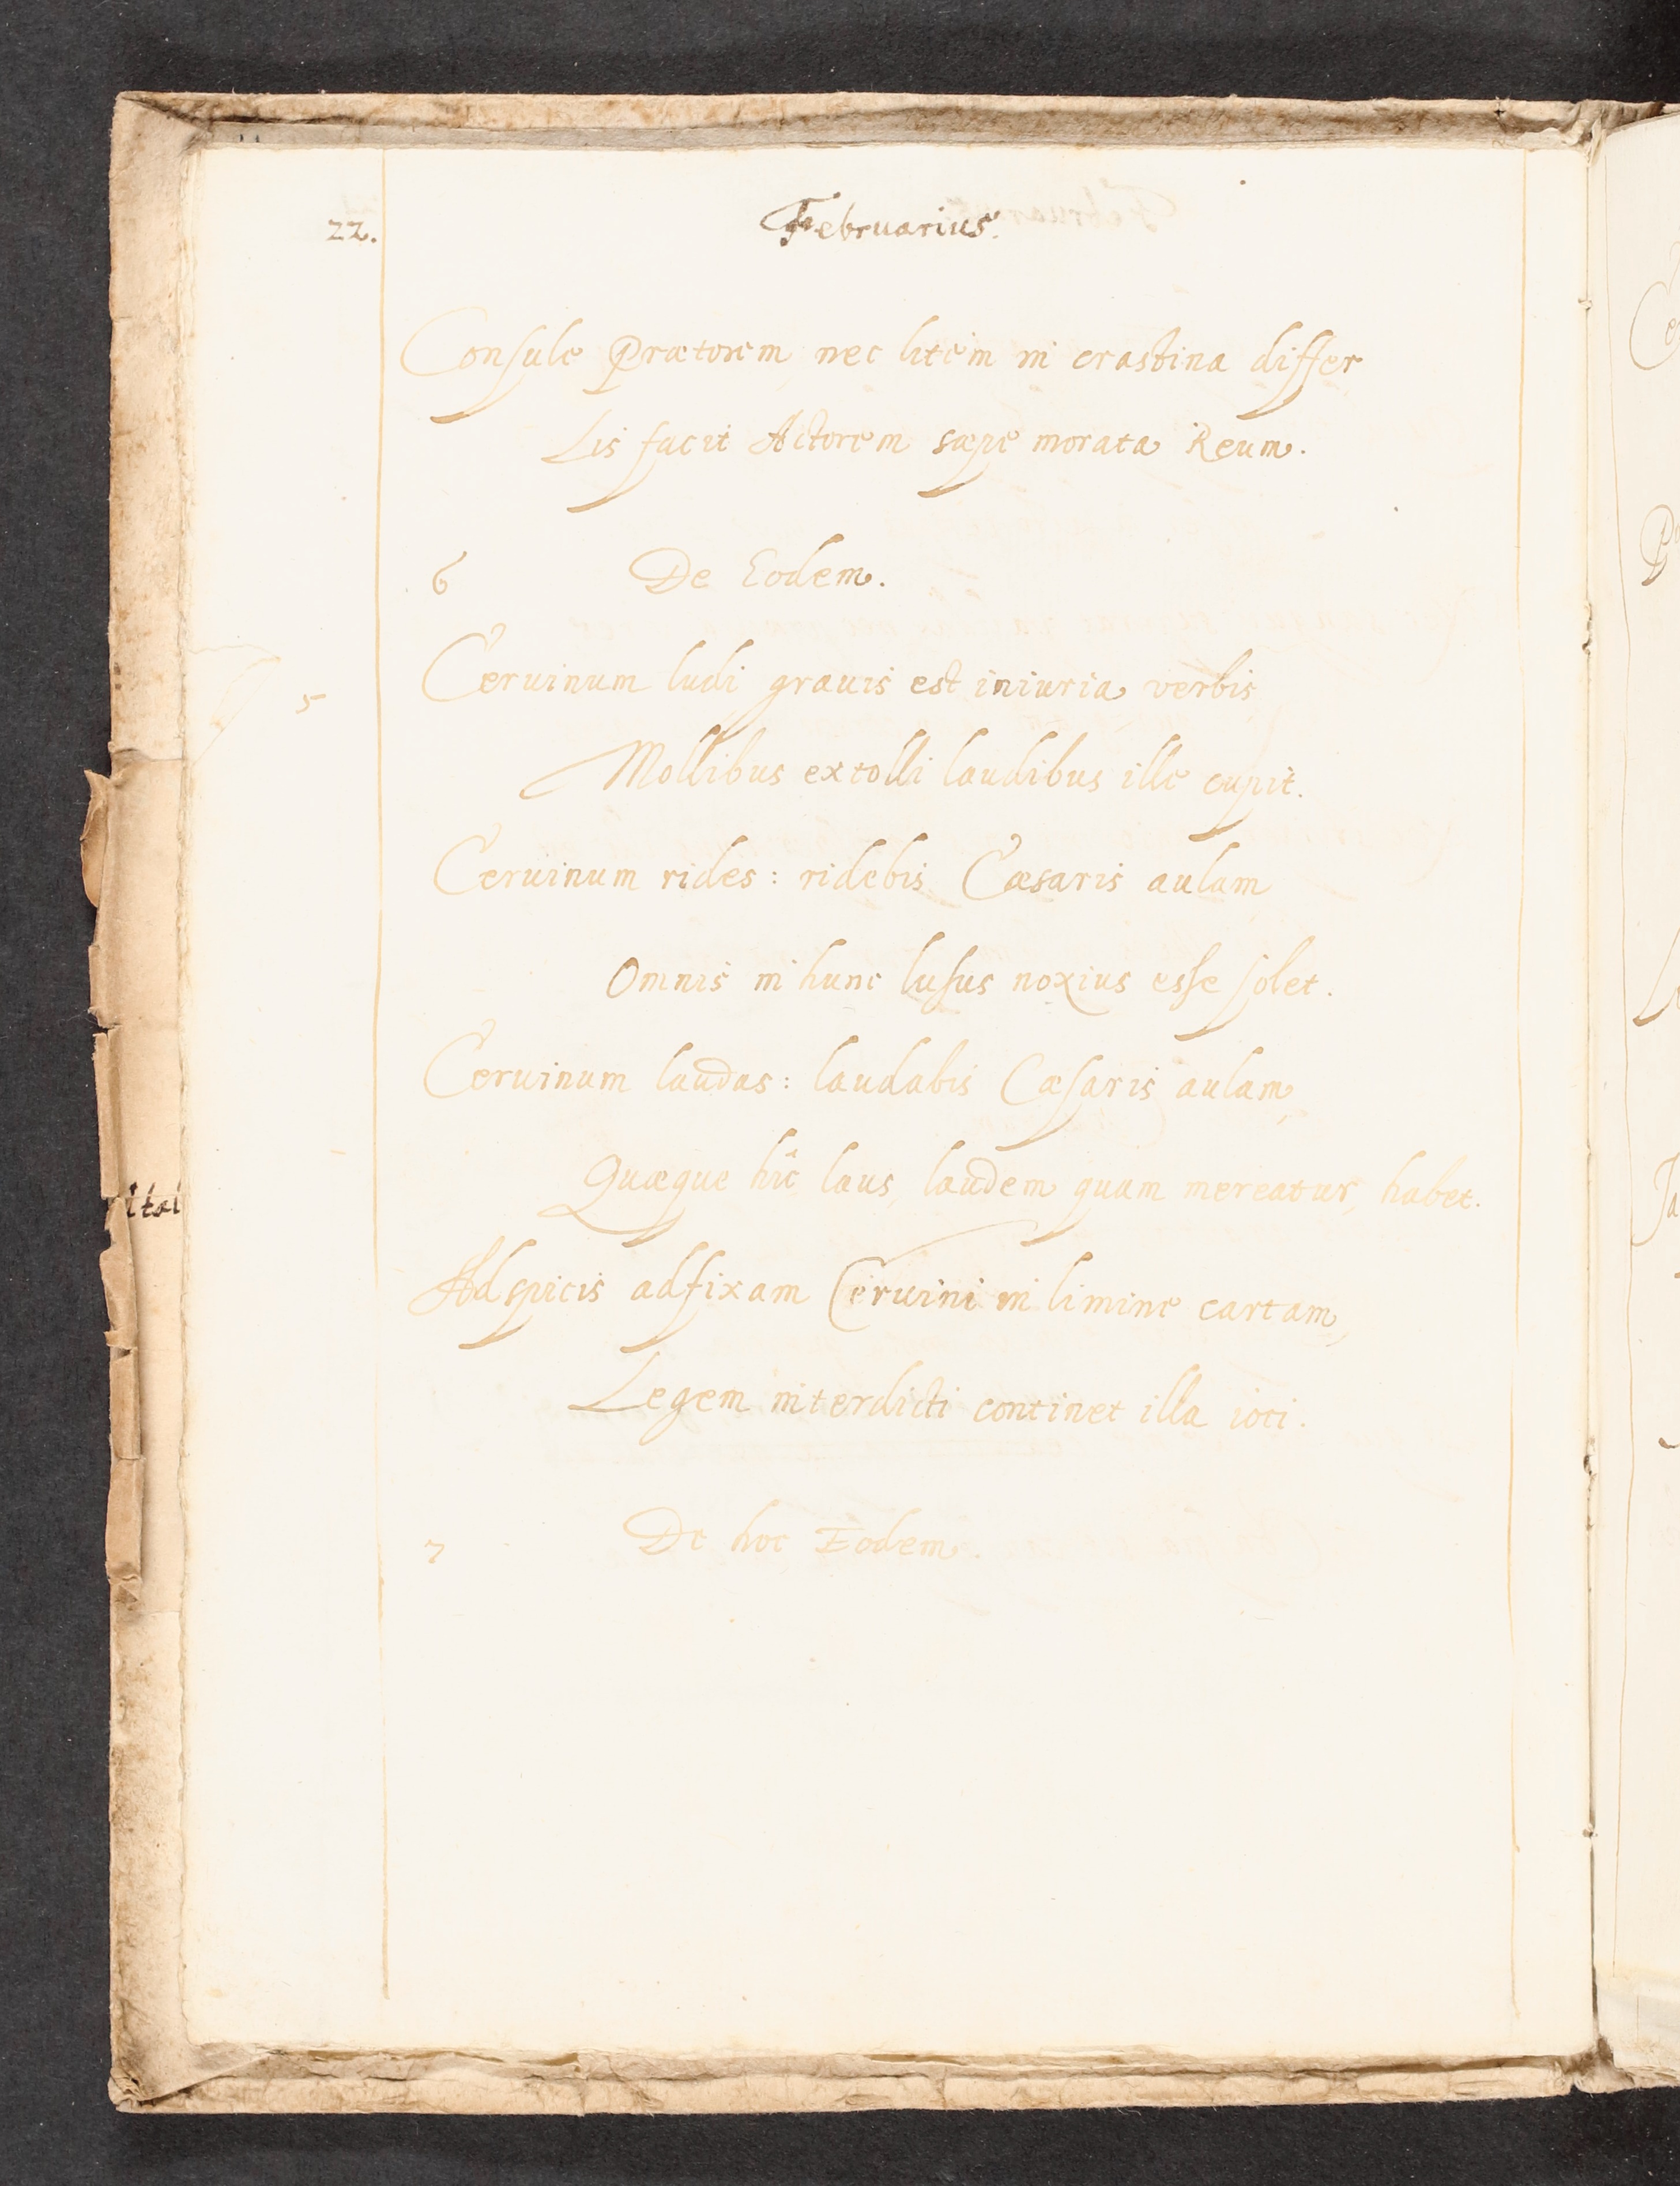 22.
Februarius.
Consule Prætorem nec litem in crastina differ
Lis facit Actorem sæpe morata Reum.
6 De Eodem.
5
Ceruinum ludi grauis est iniuria verbis
Mollibus extolli laudibus ille cupit.
Ceruinum rides: ridebis Cæsaris aulam
Omnis in hunc lusus noxius esse solet.
Ceruinum laudas: laudabis Cæsaris aulam,
Quæque hîc laus, laudem quam mereatur, habet.
Adspicis adfixam Ceruini in limine cartam,
Legem interdicti continet illa ioci.
7 De hoc Eodem.